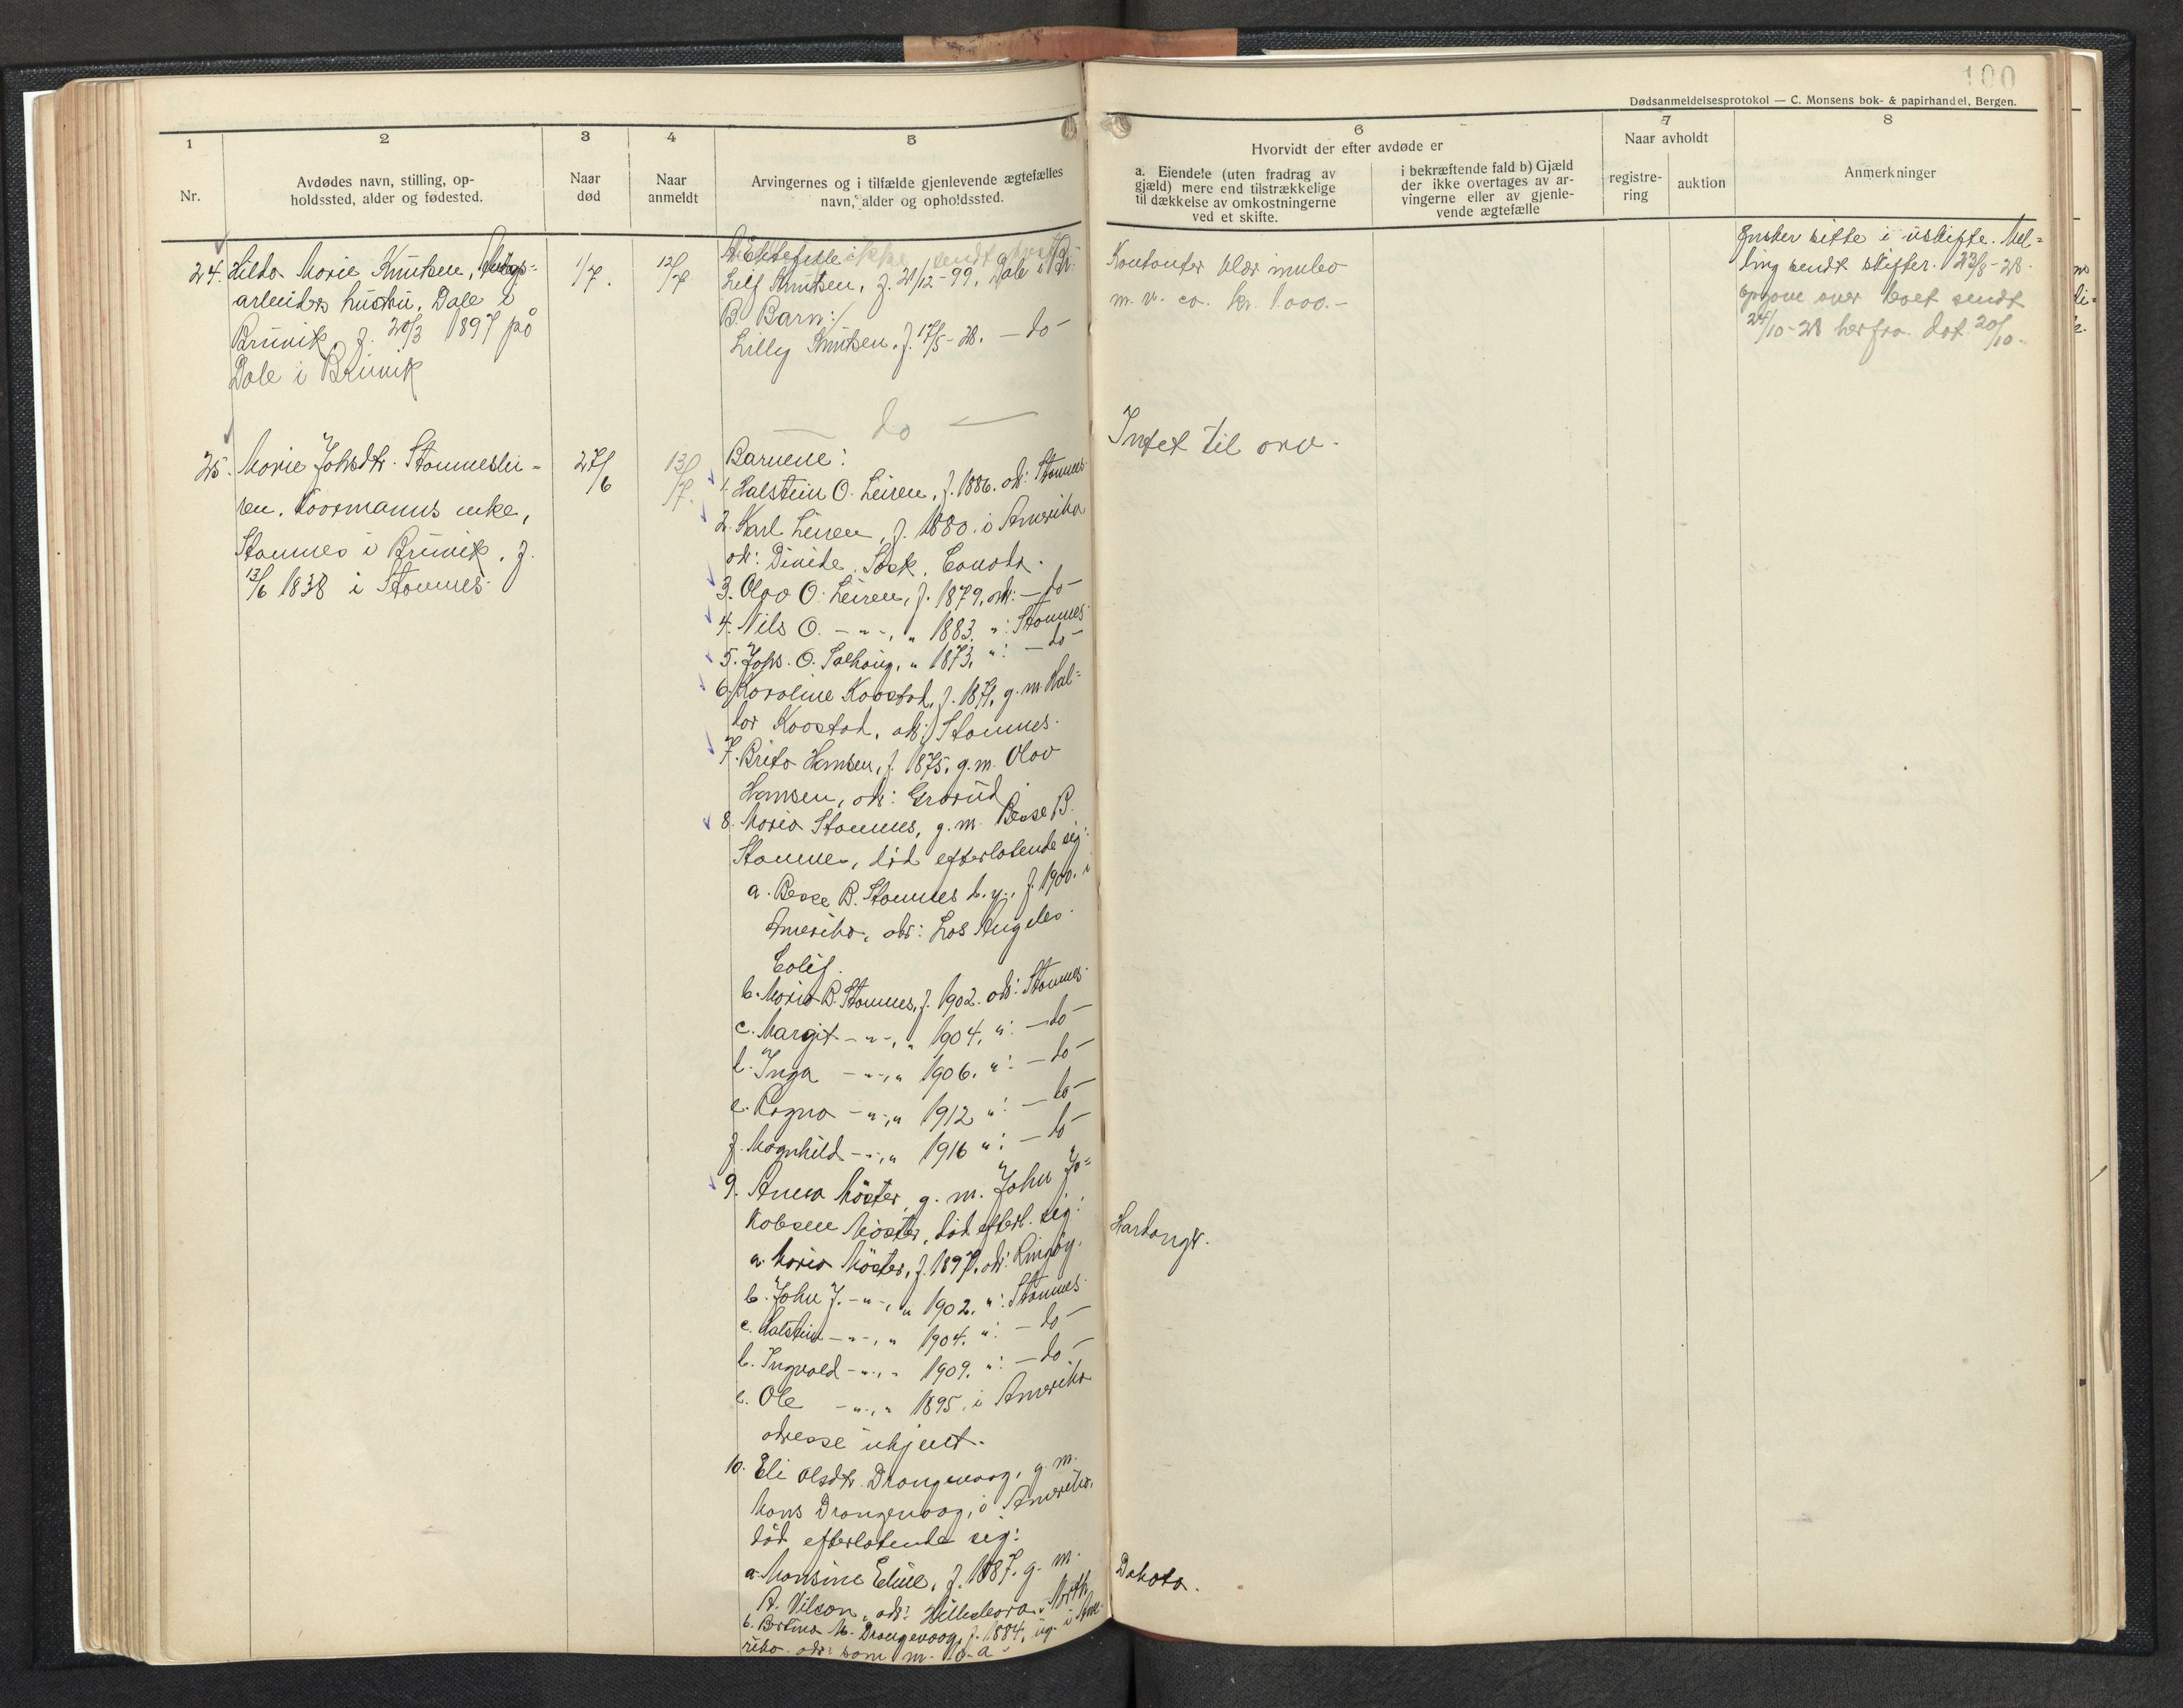 100
Dødsanmeldelsesprotokol — C. Monsens bok- & papirhandel, Bergen.
1
Nr.
2
Avdødes navn, stilling, op-
holdssted, alder og fødested.
3
Naar
død
4
Naar
anmeldt
5
Arvingernes og i tilfælde gjenlevende ægtefælles
navn, alder og opholdssted.
6
Hvorvidt der efter avdøde er
a. Eiendele (uten fradrag av
gjæld) mere end tilstrækkelige
til dækkelse av omkostningerne
ved et skifte.
i bekræftende fald b) Gjæld
der ikke overtages av ar-
vingerne eller av gjenle-
vende ægtefælle
7
Naar avholdt
registre-
ring
auktion
8
Anmerkninger
24. Hilda Marie Knutsen,
arbeiders hustru, Dale i
Bruvik, f. 20/3 1897 på
Dale i Bruvik
1/7.
12/7
A. Ektefelle
Leif Knutsen, f. 21/12-99, Dale i Br.
B. Barn:
Lilly Knutsen, f. 17/5-28. — do —
Kontanter klær innbo
m. v. ca. kr. 1000.-
Ønsker sitte i uskifte. Mel=
ding sendt skifter. 23/8-28.
Opgave over boet sendt
24/10-28 herfra. dat. 20/10-
— do —
25. Marie Johsdtr. Stamneslei-
ren, Kaarmanns enke,
Stamnes i Bruvik, f.
13/6 1838 i Stamnes.
27/6
13/7.
Intet til arv.
Barnene:
1. Halstein O. Leiren, f. 1886. adr: Stamnes
2. Karl Leiren, f. 1880. i Amerika
adr: Divide, Sask, Canada.
3. Olav O. Leiren, f. 1879, adr: — do —
4. Nils O. — " —, " 1883. ": Stamnes
5. Johs. O. Solhaug, " 1873, ": — do —
6. Karoline Kvastad, f. 1871, g. m. Hal=
dor Kvastad, adr: Stamnes.
7. Brita Hansen, f. 1875, g. m. Olav
Hansen, adr: Grorud.
8. Maria Stamnes, g. m. Basse B.
Stamnes, död efterlatende sig:
a. Basse B. Stamnes d. y., f. 1900. i
Amerika, adr: Los Angeles
Calif.
b. Maria B. Stamnes, f. 1902. adr: Stamnes
c. Margit — " —, " 1904, ": — do —
d. Inga — " —, " 1906. ": — do —
e. Ragna — " —, " 1912 ": — do —
f. Magnhild — " —, " 1916 ": — do —
9. Anna Möster, g. m. John Ja=
kobsen Möster, död efterl. sig:
a. Maria Möster, f. 1897, adr: Ringöy.
Hardanger.
b. John J. — " —, " 1902. ": Stamnes
c. Halstein — " —, " 1904. ": — do —
d. Ingvald — " —, " 1909. ": — do —
e. Ole — " —, " 1895. i Amerika
adresse ukjent.
10. Eli Olsdtr. Drangevaag, g. m.
Mons Drangevaag, i Amerika,
död efterlatende sig:
a. Monsine Eline, f. 1887. g. m.
A. Vilson, adr: North
Dakota.
b. Bertina M. Drangevaag, f. 1884, ug. i Ame-
rika. adr: som m. 10-a